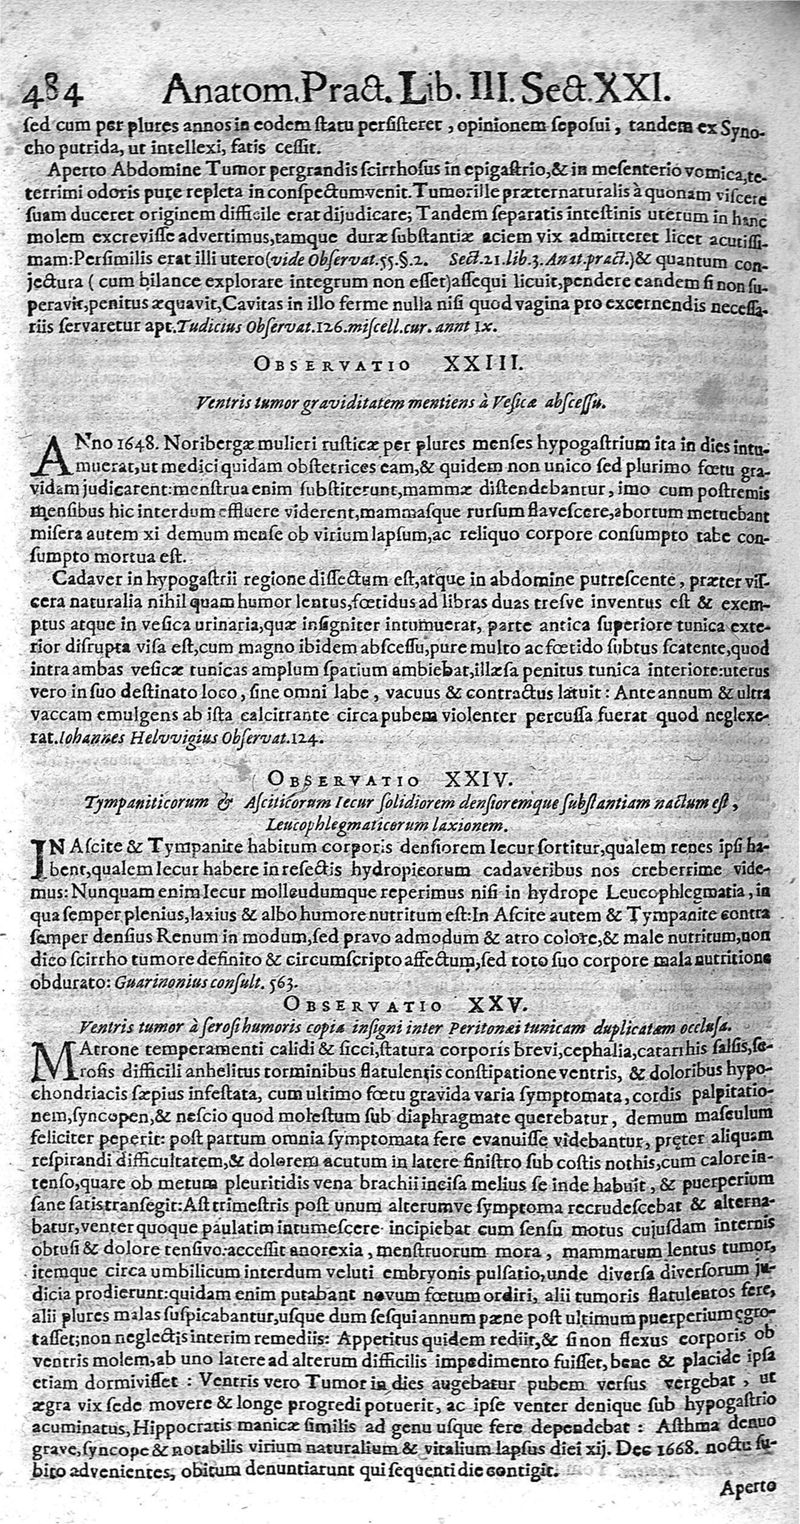 484 Anatom. Pract. Lib. III. Sect. XXI.
ſed cum per plures annos in eodem ſtatu perſiſteret, opinionem ſepoſui, tandem ex Syno-
cho putrida, ut intellexi, fatis ceſſit.
Aperto Abdomine Tumor pergrandis ſcirrhoſus in epigaſtrio,& in meſenterio vomica,te-
terrimi odoris pure repleta in conſpectum venit. Tumor ille præternaturalis à quonam viſcere
ſuam duceret originem difficile erat dijudicare; Tandem ſeparatis inteſtinis uterum in hanc
molem excreviſſe advertimus,tamque duræ ſubſtantiæ aciem vix admitteret licet acutiſſi-
mam:Perſimilis erat illi utero(vide Obſervat.55.§.2. Sect.21.lib.3.Anat.pract.)& quantum con-
jectura ( cum bilance explorare integrum non eſſet)aſſequi licuit,pendere eandem ſi non ſu-
peravit,penitus æquavit,Cavitas in illo ferme nulla niſi quod vagina pro excernendis neceſſa-
riis ſervaretur apt.Tudicius Obſervat.126.miſcell.cur. annt ix.
OBSERVATIO XXIII.
Ventris tumor graviditatem mentiens à Veſicæ abſceſſu.
ANno 1648. Noribergæ mulieri ruſticæ per plures menſes hypogaſtrium ita in dies intu-
muerat,ut medici quidam obſtetrices eam,& quidem non unico ſed plurimo fœtu gra-
vidam judicarent:menſtrua enim ſubſtiterunt,mammæ diſtendebantur, imo cum poſtremis
menſibus hic interdum effluere viderent,mammaſque rurſum flaveſcere,abortum metuebant
miſera autem xi demum menſe ob virium lapſum,ac reliquo corpore conſumpto tabe con-
ſumpto mortua eſt.
Cadaver in hypogaſtrii regione diſſectum eſt,atque in abdomine putreſcente, præter viſ-
cera naturalia nihil quam humor lentus,fœtidus ad libras duas treſve inventus eſt & exem-
ptus atque in veſica urinaria,quæ inſigniter intumuerat, parte antica ſuperiore tunica exte-
rior diſrupta viſa eſt,cum magno ibidem abſceſſu,pure multo ac fœtido ſubtus ſcatente,quod
intra ambas veſicæ tunicas amplum ſpatium ambiebat,illæſa penitus tunica interiore:uterus
vero in ſuo deſtinato loco, ſine omni labe, vacuus & contractus latuit: Ante annum & ultra
vaccam emulgens ab iſta calcitrante circa pubem violenter percuſſa fuerat quod neglexe-
rat.Iohannes Helvvigius Obſervat.124.
OBSERVATIO XXIV.
Tympaniticorum & Aſciticorum Iecur ſolidiorem denſioremque ſubſtantiam nactum eſt,
Leucophlegmaticorum laxionem.
IN Aſcite & Tympanite habitum corporis denſiorem Iecur ſortitur,qualem renes ipſi ha-
bent,qualem Iecur habere in reſectis hydropicorum cadaveribus nos creberrime vide-
mus: Nunquam enim Iecur molle udumque reperimus niſi in hydrope Leucophlegmatia, in
qua ſemper plenius,laxius & albo humore nutritum eſt:In Aſcite autem & Tympanite contra
ſemper denſius Renum in modum,ſed pravo admodum & atro colore,& male nutritum,non
dico ſcirrho tumore definito & circumſcripto affectum,ſed toto ſuo corpore mala nutritione
obdurato: Guarinonius conſult. 563.
OBSERVATIO XXV.
Ventris tumor à ſeroſi humoris copia inſigni inter Peritonæi tunicam duplicatam occluſa.
MAtrone temperamenti calidi & ſicci,ſtatura corporis brevi,cephalia,catarrhis ſalſis,ſe-
roſis difficili anhelitus torminibus flatulentis conſtipatione ventris, & doloribus hypo-
chondriacis ſæpius infeſtata, cum ultimo fœtu gravida varia ſymptomata, cordis palpitatio-
nem,ſyncopen,& neſcio quod moleſtum ſub diaphragmate querebatur, demum maſculum
feliciter peperit: poſt partum omnia ſymptomata fere evanuiſſe videbantur, pręter aliquam
reſpirandi difficultatem,& dolorem acutum in latere ſiniſtro ſub coſtis nothis,cum calore in-
tenſo,quare ob metum pleuritidis vena brachii inciſa melius ſe inde habuit, & puerperium
ſane ſatis tranſegit:Aſt trimeſtris poſt unum alterumve ſymptoma recrudeſcebat & alterna-
batur,venter quoque paulatim intumeſcere incipiebat cum ſenſu motus cujuſdam internis
obtuſi & dolore tenſivo:acceſſit anorexia, menſtruorum mora, mammarum lentus tumor,
itemque circa umbilicum interdum veluti embryonis pulſatio,unde diverſa diverſorum ju-
dicia prodierunt:quidam enim putabant novum fœtum ordiri, alii tumoris flatulentos fere,
alii plures malas ſuſpicabantur,uſque dum ſeſqui annum pæne poſt ultimum puerperium ęgro-
taſſet;non neglectis interim remediis: Appetitus quidem rediit,& ſi non flexus corporis ob
ventris molem,ab uno latere ad alterum difficilis impedimento fuiſſet, bene & placide ipſa
etiam dormiviſſet : Ventris vero Tumor in dies augebatur pubem verſus vergebat, ut
ægra vix ſede movere & longe progredi potuerit, ac ipſe venter denique ſub hypogaſtrio
acuminatus, Hippocratis manicæ ſimilis ad genu uſque fere dependebat : Aſthma denuo
grave,ſyncope & notabilis virium naturalium & vitalium lapſus diei xij. Dec 1668. noctu ſu-
bito advenientes, obitum denuntiarunt qui ſequenti die contigit.
Aperto